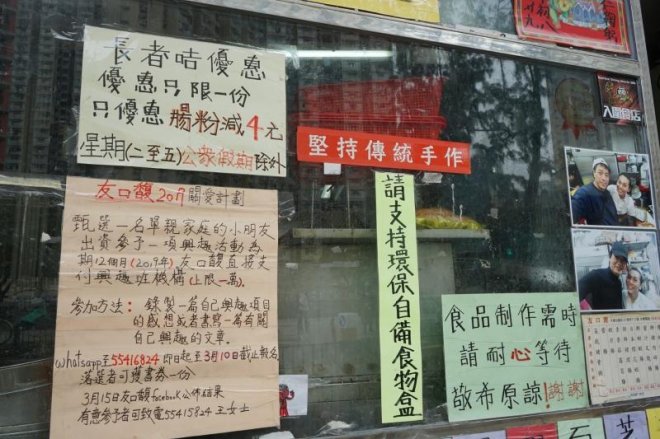 長者咭優惠
優惠只限一份
只優惠 腸粉減4元
星期(二至五)公衆假期除外
堅持傳統手作
友口馥2019關愛計劃
甄選一名單親家庭的小朋友
出資參予一項興趣活動為
期12個月(2019年)友口馥直接支
付興趣班機構(上限一萬)。
參加方法: 錄製一篇自己興趣項目
的感想或者書寫一篇有關
自己興趣的文章.
Whatsapp至55416824 即日起至3月10日截止報名
落選者可獲書券一份.
3月15日友口馥facebook公佈結果
有意參予者可致電55415824 王女士
請支持環保自備食物盒
食品制作需時
請耐心等待
敬希原諒!謝謝!
入圍食店